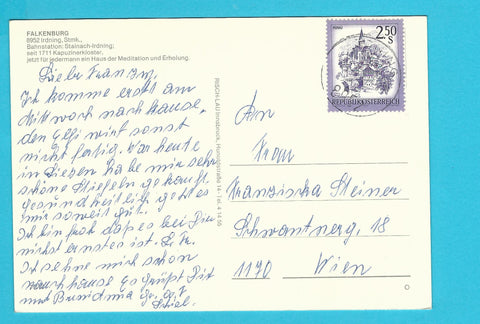 FALKENBURG
8952 Irdning, Stmk.,
Bahnstation: Stainach-Irdning;
seit 1711 Kapuzinerkloster,
jetzt für jedermann ein Haus der Meditation und Erholung.
Liebe
Ich komme erst am
Mittwoch nach hause,
den wird sonst
nicht fertig. War heute
in Liezen habe mir sehr
schöne Stiefeln gekauft.
gesundheitlich geht es
mir soweit gut.
Ich bin froh das es bei
nichts ernstes ist.
Ich sehne mich schon
nach hause Es Grüßt Dit
mit
RISCH-LAU Innsbruck
2.50
S
REPUBLIK ÖSTERREICH
An
Frau
Franziska Steiner
18
1170 Wien